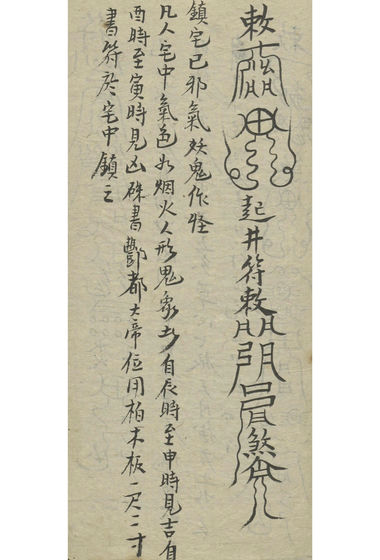 敕起井符敕煞
鎮宅已邪氣妖鬼作怪
凡人宅中氣色如烟火人形鬼象者自辰時至申時見吉自
酉時至寅時見凶硃書酆都大帝位用柏木板一尺二寸
書符於宅中鎮之